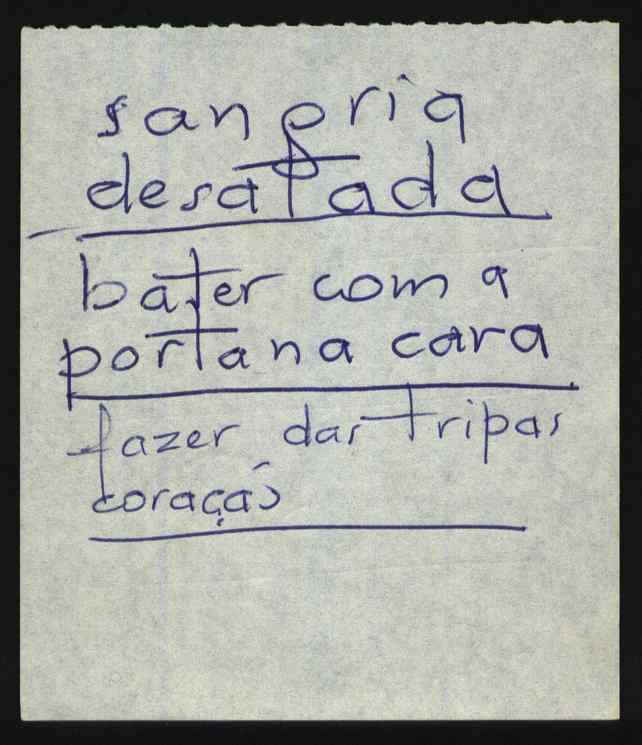 sangria
desatada
bater com a
porta na cara
fazer das tripas
coração